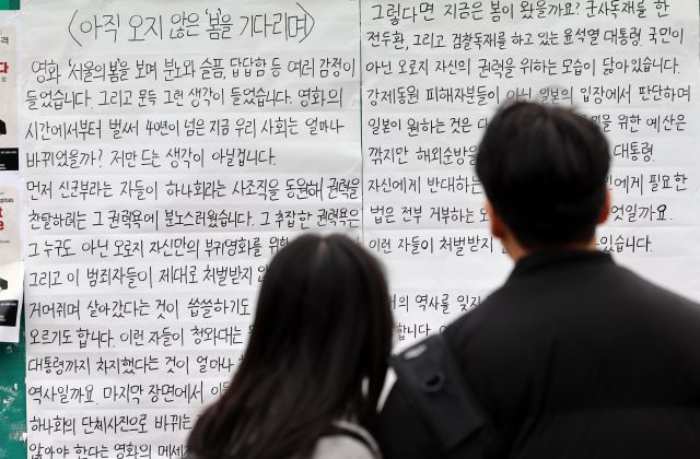 <아직 오지 않은 '봄'을 기다리며>
영화 '서울의 봄'을 보며 분노와 슬픔, 답답함 등 여러 감정이
들었습니다. 그리고 문득 그런 생각이 들었습니다. 영화의
시간에서부터 벌써 40년이 넘은 지금 우리 사회는 얼마나
바뀌었을까? 저만 드는 생각이 아닐겁니다.
먼저 신군부라는 자들이 하나회라는 사조직을 동원해 권력을
찬탈하려는 그 권력욕에 분노스러웠습니다. 그 추잡한 권력욕은
그 누구도 아닌 오로지 자신만의 부귀영화를 위한
그리고 이 범죄자들이 제대로 처벌받지 않
거머쥐며 살아갔다는 것이 씁쓸하기도
오르기도 합니다. 이런 자들이 청와대는
대통령까지 차지했다는 것이 얼마나
역사일까요 마지막 장면에서 이들
하나회의 단체사진으로 바뀌는
않아야 한다는 영화의 메세
그렇다면 지금은 봄이 왔을까요? 군사독재를 한
전두환, 그리고 검찰독재를 하고 있는 윤석열 대통령. 국민이
아닌 오로지 자신의 권력을 위하는 모습이 닮아있습니다.
강제동원 피해자분들이 아닌 일본의 입장에서 판단하며
일본이 원하는 것은 위한 예산은
깎지만 해외순방을 대통령.
자신에게 반대하는 에게 필요한
법은 전부 거부하는 모 엇일까요.
이런 자들이 처벌받지 있습니다.
의 역사를 잊지
합니다.